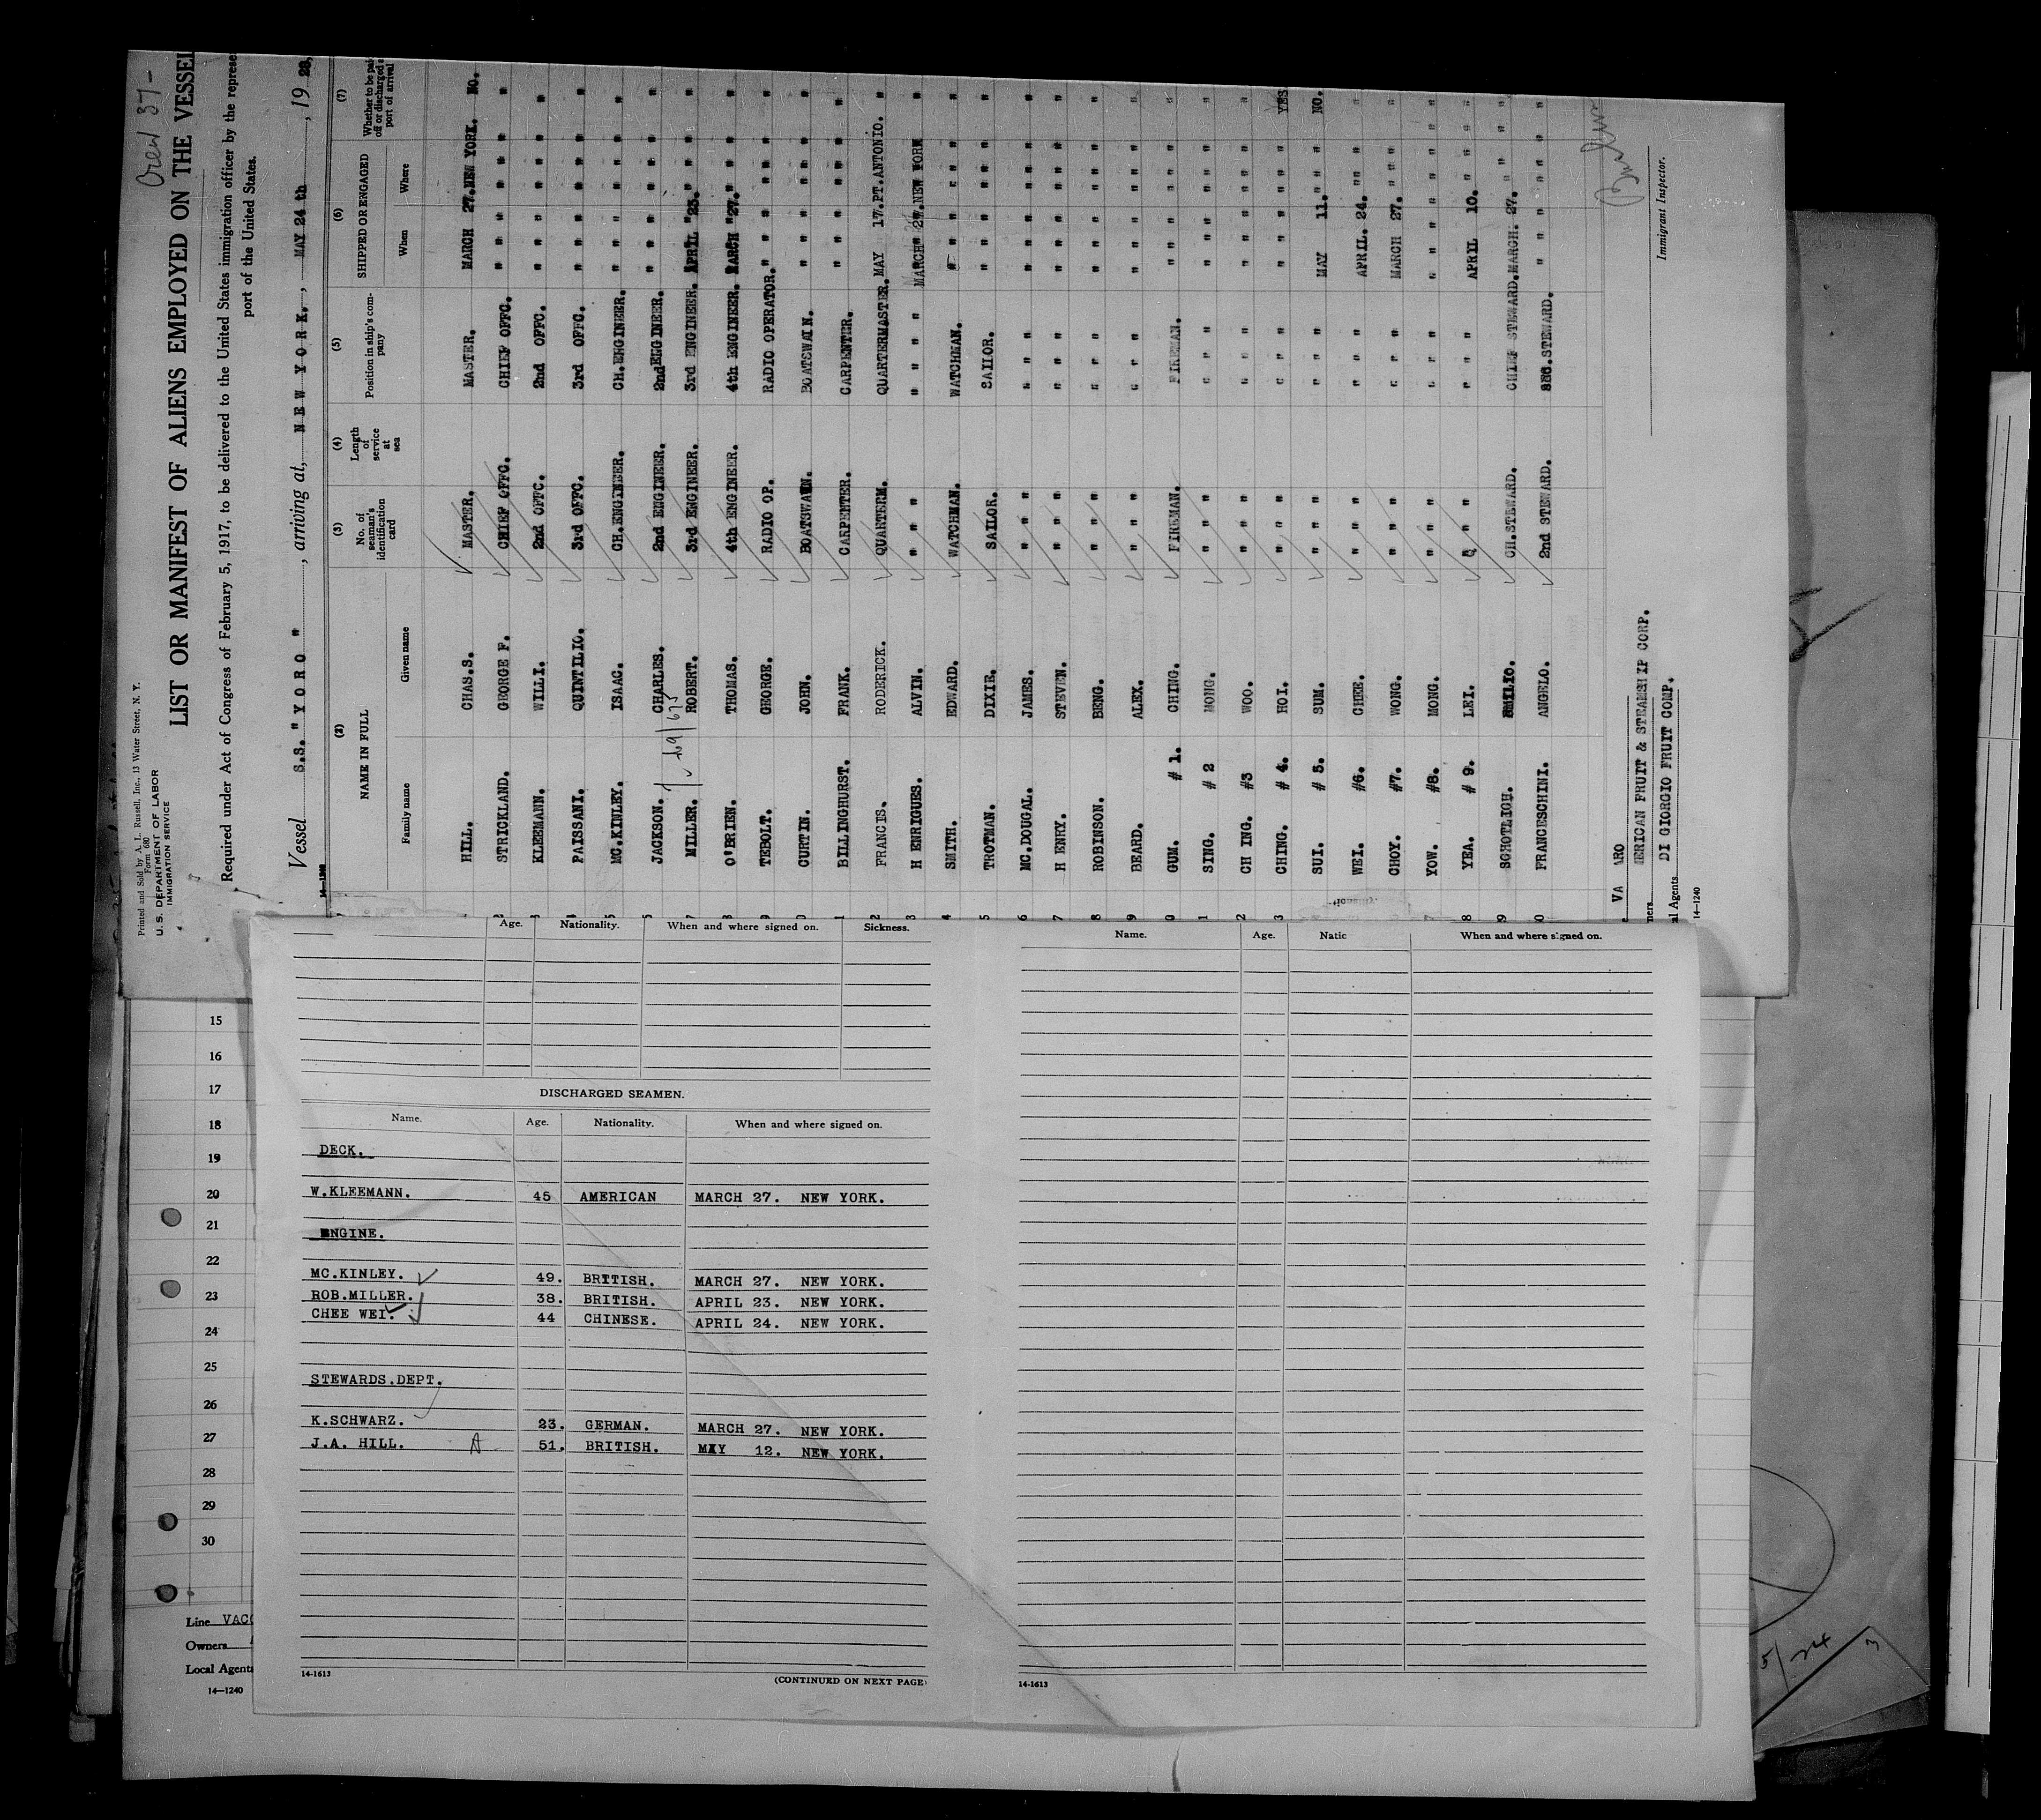 Crew 37 -
Printed and Sold by A. L. Russell, Inc., 13 Water Street, N. Y.
Form 680
U. S. DEPARTMENT OF LABOR
IMMIGRATION SERVICE
LIST OR MANIFEST OF ALIENS EMPLOYED ON THE VESSEL
Required under Act of Congress of February 5, 1917, to be delivered to the United States immigration officer by the represe
port of the United States.
Vessel S.S. "YORO", arriving at, NEW YORK., MAY 24 th, 19 28,
14-1240
(2) (3) (4) (5) (6) (7)
NAME IN FULL No. of seaman's identification card Length of service at sea Position in ship's company SHIPPED OR ENGAGED Whether to be paid off or discharged at port of arrival
Family name Given name When Where
HILL. CHAS.S. MASTER. MASTER. MARCH 27. NEW YORK. NO.
2 STRICKLAND. GEORGE F. CHIEF OFFC. CHIEF OFFC. " " " " " "
3 KLEEMANN. WILLI. 2nd OFFC. 2nd OFFC. " " " " " "
4 PAISSANI. QUINTILIO. 3rd OFFC. 3rd OFFC. " " " " " "
5 MC.KINLEY. ISAAC. CH.ENGINEER. CH.ENGINEER. " " " " " "
JACKSON. CHARLES. 2nd ENGINEER. 2nd ENGINEER. " " " " " "
7 MILLER. ROBERT. 3rd ENGINEER. 3rd ENGINEER. APRIL 23. " " " "
8 O'BRIEN. THOMAS. 4th ENGINEER. 4th ENGINEER. MARCH 27. " " " "
9 TEBOLT. GEORGE. RADIO OP. RADIO OPERATOR. " " " " " "
0 CURTIN. JOHN. BOATSWAIN. BOATSWAIN. " " " " " "
1 BILLINGHURST. FRANK. CARPENTER. CARPENTER. " " " " " "
2 FRANCIS. RODERICK. QUARTERM. QUARTERMASTER. MAY 17. PT.ANTONIO. "
3 H ENRIQUES. ALVIN. " " " " " " MARCH 27. NEW YORK "
4 SMITH. EDWARD. WATCHMAN. WATCHMAN. " " " " " "
5 TROTMAN. DIXIE. SAILOR. SAILOR. " " " " " "
6 MC.DOUGAL. JAMES. " " " " " " " " " " " "
7 H ENRY. STEVEN. " " " " " " " " " " " "
8 ROBINSON. BENG. " " " " " " " " " " "
9 BEARD. ALEX. " " " " " " " " " " "
0 GUM. # 1. CHING. FIREMAN. FIREMAN. " " " " " "
1 SING. # 2 MONG. " " " " " " " " " " " "
2 CH ING. #3 WOO. " " " " " " " " " " " "
3 CHING. # 4. HOI. " " " " " " " " " " " YES
SUI. # 5. SUM. " " " " " " MAY 11. " " " NO.
WEI. #6. CHEE. " " " " " " APRIL. 24. " " " "
CHOY. #7. WONG. " " " " " " MARCH 27. " " " "
YOW. #8. MONG. " " " " " " " " " " " "
8 YEA. # 9. LEI. " " " " " APRIL 10. " " " "
9 SCHOTLIGH. EMILIO. CH.STEWARD. CHIEF STEWARD. MARCH. 27. " " "
0 FRANCESCHINI. ANGELO. 2nd STEWARD. SEC.STEWARD. " " " " " "
VA ARO
MERICAN FRUIT & STEAMSH IP CORP.
ners
DI GIORGIO FRUIT COMP.
al Agents
14-1240
Immigrant Inspector.
Age. Nationality. When and where signed on. Sickness.
DISCHARGED SEAMEN.
Name. Age. Nationality. When and where signed on.
DECK.
W.KLEEMANN. 45 AMERICAN MARCH 27. NEW YORK.
ENGINE.
MC.KINLEY. 49. BRITISH. MARCH 27. NEW YORK.
ROB.MILLER. 38. BRITISH. APRIL 23. NEW YORK.
CHEE WEI. 44 CHINESE. APRIL 24. NEW YORK.
STEWARDS.DEPT.
K.SCHWARZ. 23. GERMAN. MARCH 27. NEW YORK.
J.A. HILL. A 51. BRITISH. MAY 12. NEW YORK.
14-1613
(CONTINUED ON NEXT PAGE)
Name. Age. Natio When and where signed on.
14-1613
15
16
17
18
19
20
21
22
23
24
25
26
27
28
29
30
Line VACC
Owners
Local Agents
14—1240
5/24
3